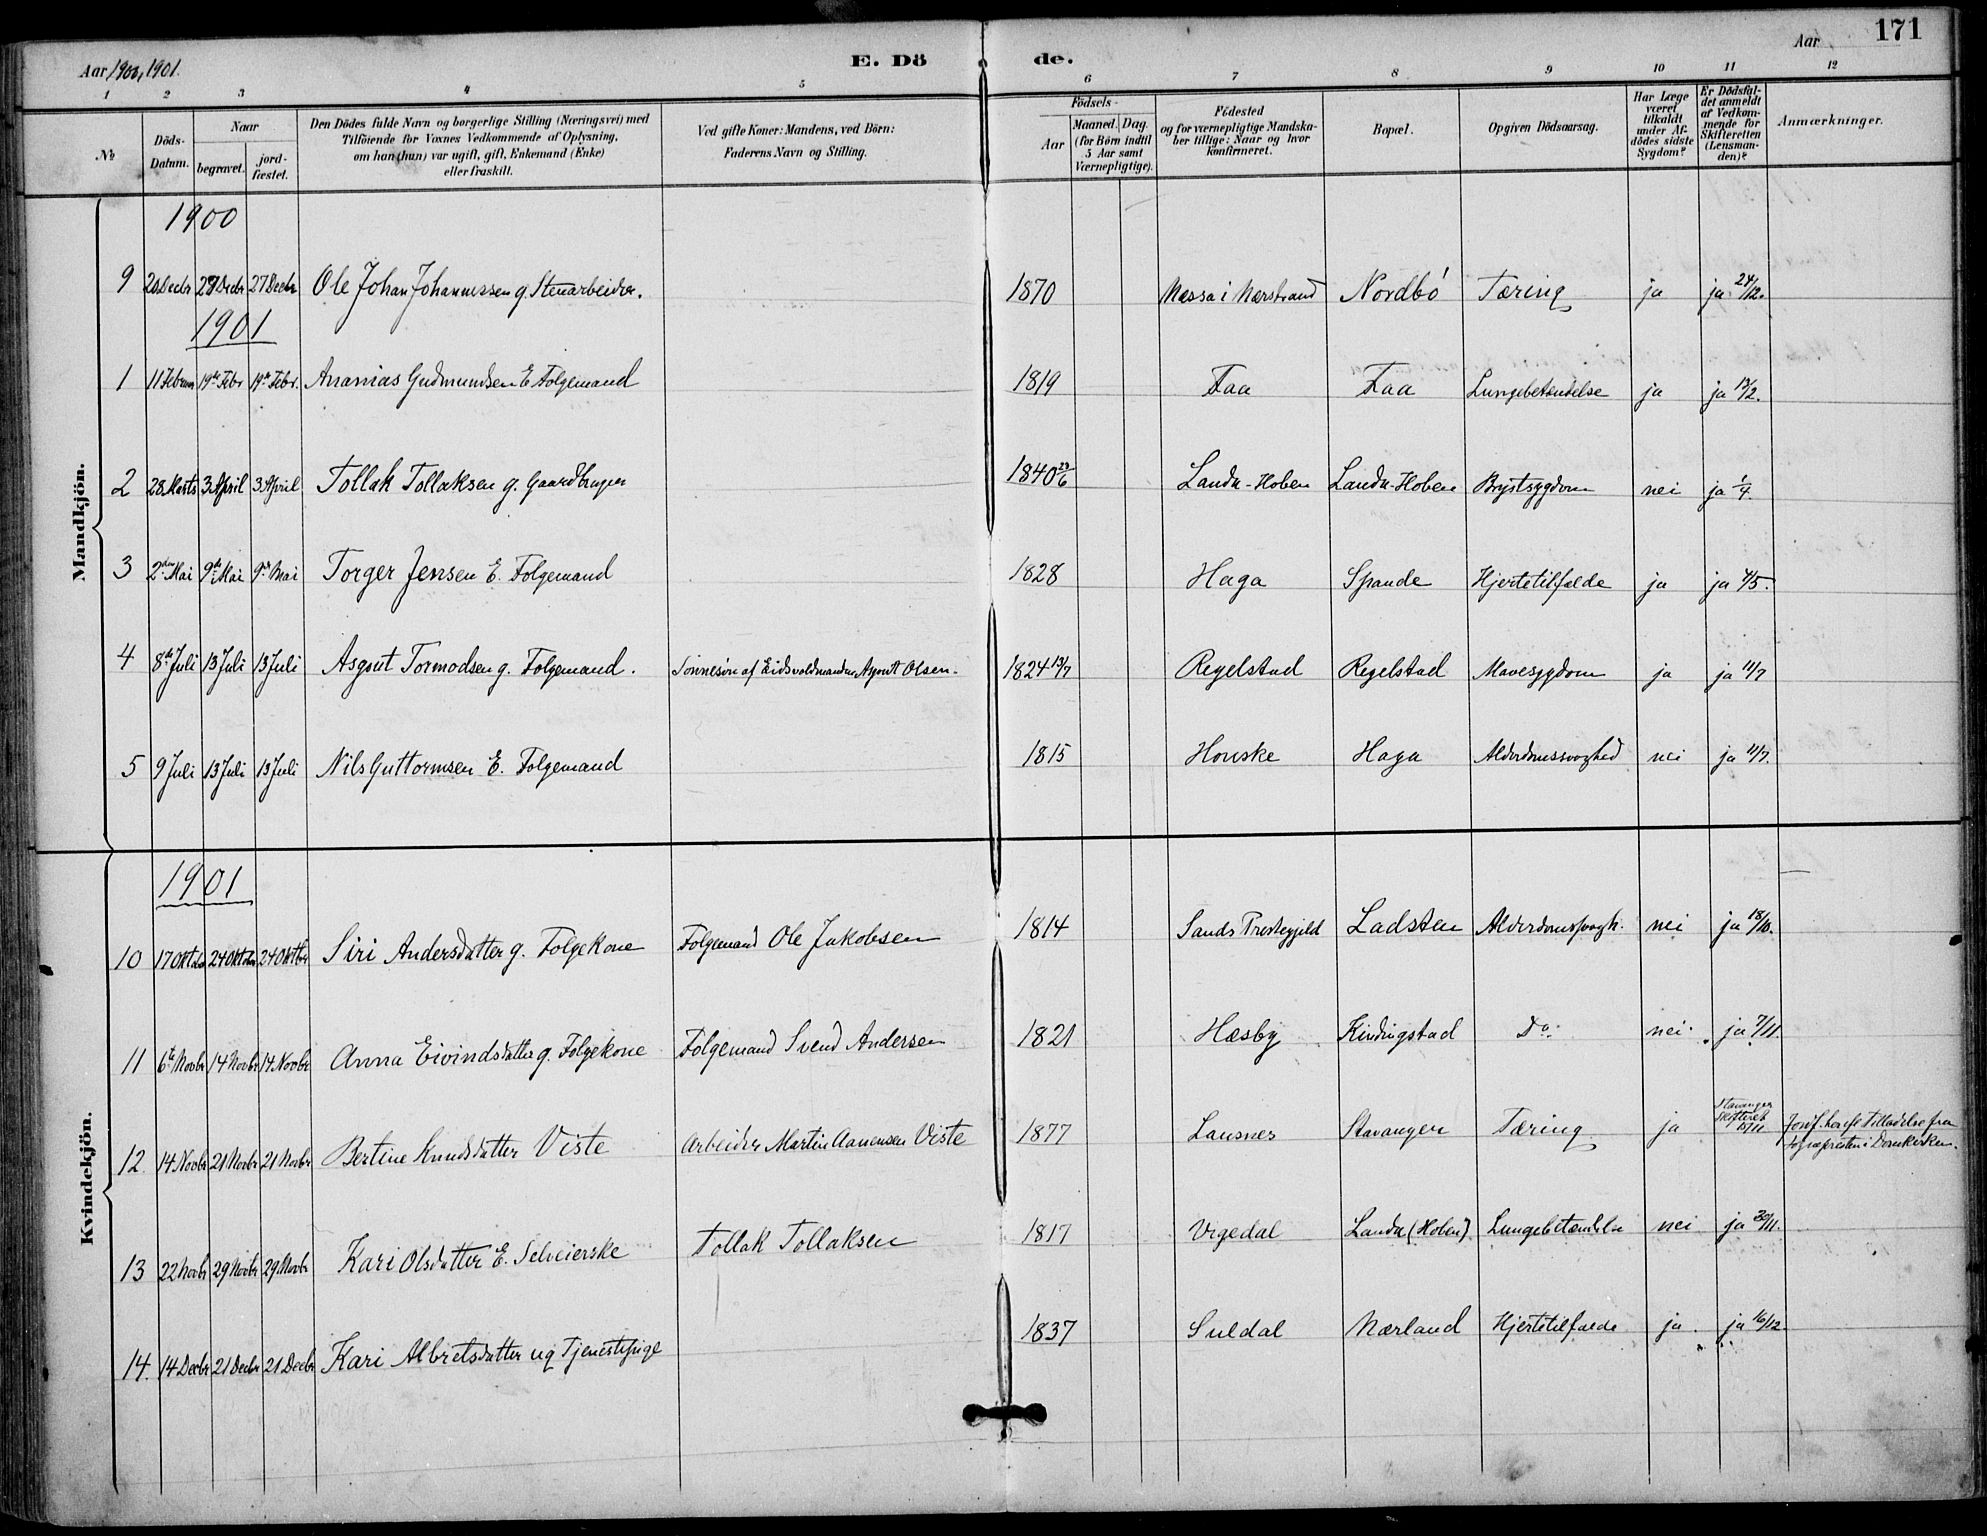 Aar 1900, 1901.
E. Dö de.
Aar
171
1 2 3 4 5 6 7 8 9 10 11 12
№
Döds-Datum.
Naar
begravet.
jord-fæstet.
Den Dödes fulde Navn og borgerlige Stilling (Næringsvei) med
Tilföiende for Voxnes Vedkommende af Oplysning,
om han (hun) var ugift, gift, Enkemand (Enke)
eller fraskilt.
Ved gifte Koner: Mandens, ved Börn:
Faderens Navn og Stilling.
Födsels-
Aar
Maaned. Dag.
(for Börn indtil
5 Aar samt
Værnepligtige).
Födested
og for værnepligtige Mandska-
ber tillige: Naar og hvor
konfirmeret.
Bopæl.
Opgiven Dödsaarsag.
Har Læge
været
tilkaldt
under Af-
dödes sidste
Sygdom?
Er Dödsfal-
det anmeldt
af Vedkom-
mende for
Skifteretten
(Lensman-
den)?
Anmærkninger.
Mandkjön.
1900
9 20 Decbr 27 Decbr 27 Decbr Ole Johan Johannessen g. Stenarbeider. 1870 Næssa i Nærstrand Nordbö Tæring ja ja 24/12.
1901
1 11 Februar 19de Febr 19de Febr. Ananias Gudmundsen E Folgemand 1819 Faa Faa Lungebetændelse ja ja 13/2.
2 28 Marts 3 April 3 April Tollak Tollaksen g. Gaardbruger 1840 23/6 Landa-Hoben Landa-Hoben Brystsygdom nei ja 1/4.
3 2den Mai 9de Mai 9de Mai Torger Jensen E. Folgemand 1828 Haga Spande Hjertetilfælde ja ja 4/5.
4 8de Juli 13 Juli 13 Juli Asgout Tormodsen g. Folgemand. Sönnesön af Eidsvoldmanden Asgout Olsen. 1824 13/7 Regelstad Regelstad Mavesygdom ja ja 11/7
5 9 Juli 13 Juli 13 Juli Nils Guttormsen E. Folgemand 1815 Houske Haga Alderdomssvaghed nei ja 11/7.
Kvindekjön.
1901
10 17 Oktbr 24 Oktbr 24 Oktbr Siri Andersdatter g. Folgekone Folgemand Ole Jakobsen 1814 Sands Prestegjeld Ladsten Alderdomssvagh. nei ja 18/10.
11 6te Novbr 14 Novbr 14 Novbr Anna Eivindsdatter g. Folgekone Folgemand Svend Andersen 1821 Hæsby Kindingstad Do. nei. ja 7/11.
12. 14 Novbr 21 Novbr 21 Novbr Bertine Knudsdatter Viste Arbeider Martin Aanensen Viste 1877 Lausnes Stavanger Tæring ja Stavanger Skifteret Jordf. her eft. Tilladelse fra
Sognepresten i Domkirken.
13 22 Novbr 29 Novbr 29 Novbr Kari Olsdatter E. Selveierske Tollak Tollaksen 1817 Vigedal Landa (Hoben) Lungebetændelse nei ja 30/11.
14. 14 Decbr 21 Decbr 21 Decbr Kari Albretsdatter ug Tjenestepige 1837 Suldal Nærland Hjertetilfælde ja. ja 16/12.